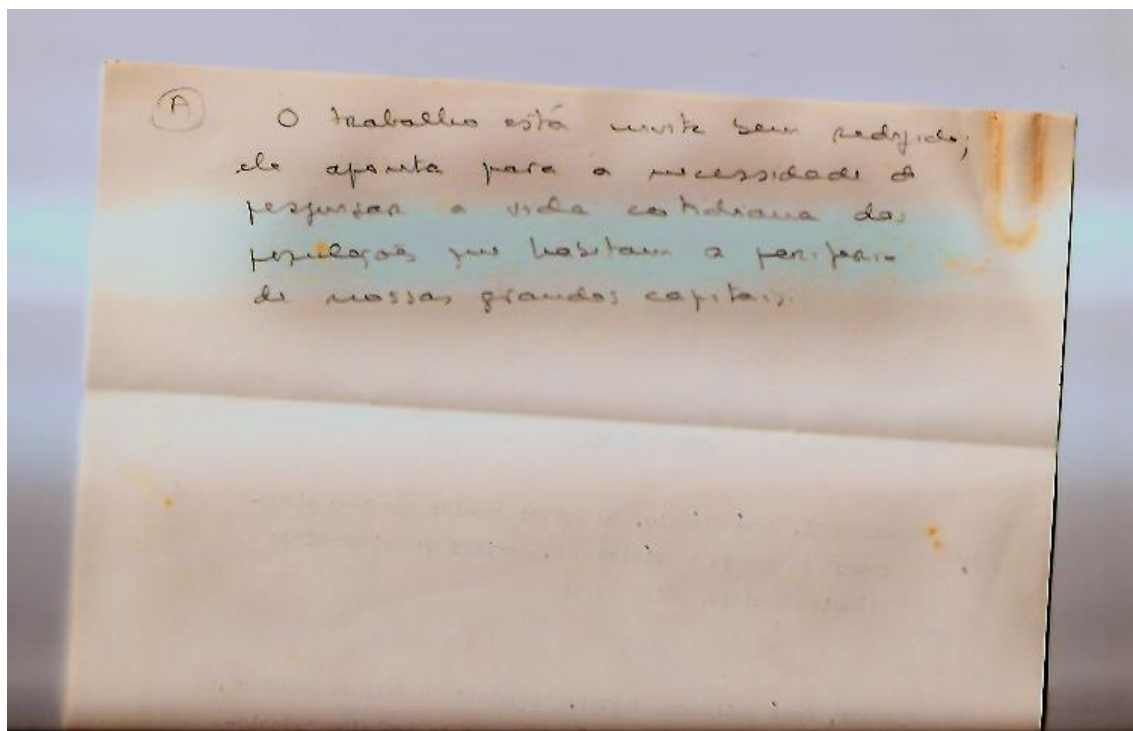 A
O trabalho está muito bem redigido;
ele aponta para a necessidade de
pesquisar a vida cotidiana das
populações que habitam a periferia
de nossas grandes capitais.